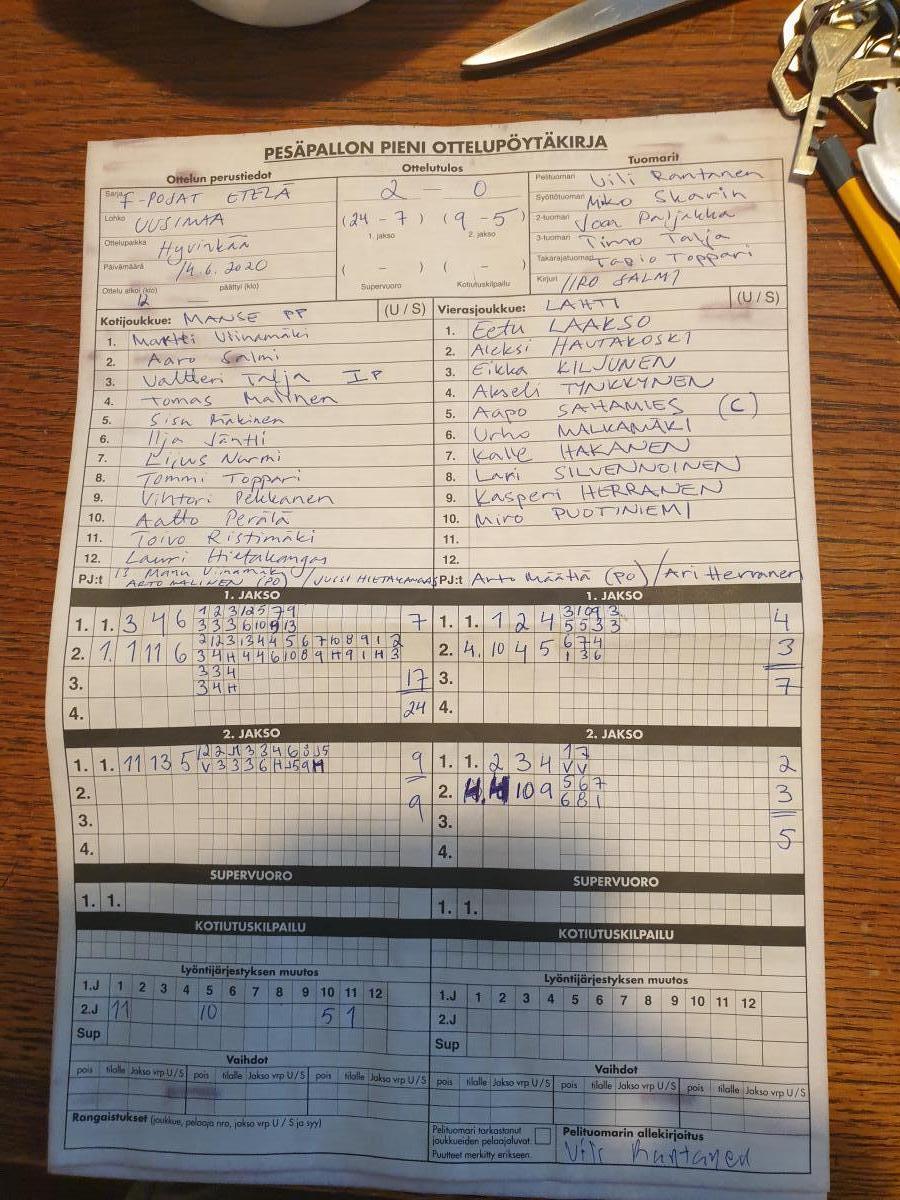 PESÄPALLON PIENI OTTELUPÖYTÄKIRJA
Ottelun perustiedot
Sarja F-POJAT ETELÄ
Lohko UUSIMAA
Ottelupaikka Hyvinkää
Päivämäärä 14.6.2020
Ottelu alkoi (klo) 12 päättyi (klo)
Ottelutulos
2 - 0
(24 - 7) (9 - 5)
1. jakso 2. jakso
( - ) ( - )
Supervuoro Kotiutuskilpailu
Tuomarit
Pelituomari Vili Rantanen
Syöttötuomari Miko Skarin
2-tuomari Joon Paljakka
3-tuomari Timo Talja
Takarajatuomari Tapio Toppari
Kirjuri IIRO SALMI
Kotijoukkue: MANSE PP (U / S)
1. Martti Viinamäki
2. Aaro Salmi
3. Valtteri Talja IP
4. Tomas Malinen
5. Sisu Mäkinen
6. Ilja Jäntti
7. Liius Nurmi
8. Tommi Toppari
9. Vihtori Pekkanen
10. Aatto Perälä
11. Toivo Ristimäki
12. Lauri Hietakangas
13 Manu Viinamäki
PJ:t ARTO MALINEN (PO) / JUSSI HIETAKANGAS
Vierasjoukkue: LAHTI (U / S)
1. Eetu LAAKSO
2. Aleksi HAUTAKOSKI
3. Eikka KILJUNEN
4. Akseli TYNKKYNEN
5. Aapo SAHAMIES (C)
6. Urho MALKAMÄKI
7. Kalle HAKANEN
8. Lari SILVENNOINEN
9. Kasperi HERRANEN
10. Miro PUOTINIEMI
11.
12.
PJ:t Arto Määttä (PO) / Ari Herranen
1. JAKSO
1. 1. 3 4 6 1 2 3 12 5 7 9 7
3 3 3 6 10 9 13
2. 1. 1 11 6 2 12 3 13 4 4 5 6 7 10 8 9 1 2
3 4 H 4 4 6 10 8 9 H 9 1 H 3
3. 3 3 4 17
3 4 H
4. 24
1. JAKSO
1. 1. 1 2 4 3 10 9 3 4
5 5 3 3
2. 4. 10 4 5 6 7 4 3
1 3 6
3. 7
4.
2. JAKSO
1. 1. 11 13 5 12 2 H 3 3 4 6 8 J5 9
V 3 3 3 6 H J5 9 H
2. 9
3.
4.
2. JAKSO
1. 1. 2 3 4 1 7 2
V V
2. 10 9 5 6 7 3
6 8 1
3. 5
4.
SUPERVUORO
1. 1.
SUPERVUORO
1. 1.
KOTIUTUSKILPAILU
KOTIUTUSKILPAILU
Lyöntijärjestyksen muutos
1.J 1 2 3 4 5 6 7 8 9 10 11 12
2.J 11 10 5 1
Sup
Lyöntijärjestyksen muutos
1.J 1 2 3 4 5 6 7 8 9 10 11 12
2.J
Sup
Vaihdot
pois tilalle Jakso vrp U / S pois tilalle Jakso vrp U / S pois tilalle Jakso vrp U / S
Vaihdot
pois tilalle Jakso vrp U / S pois tilalle Jakso vrp U / S pois tilalle Jakso vrp U / S
Rangaistukset (joukkue, pelaaja nro, jakso vrp U / S ja syy)
Pelituomari tarkastanut
joukkueiden pelaajaluvat.
Puutteet merkitty erikseen.
Pelituomarin allekirjoitus
Vili Rantanen